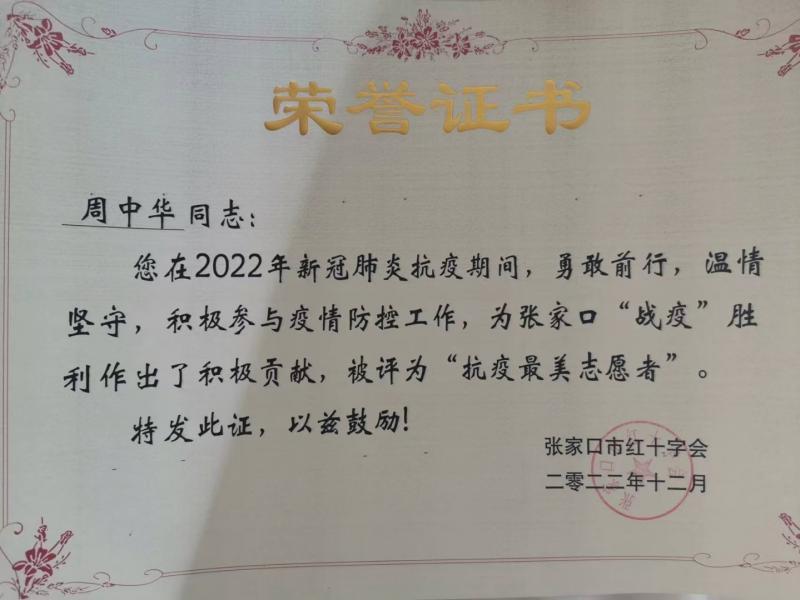 荣誉证书
周中华同志：
您在2022年新冠肺炎抗疫期间，勇敢前行，温情
坚守，积极参与疫情防控工作，为张家口“战疫”胜
利作出了积极贡献，被评为“抗疫最美志愿者”。
特发此证，以兹鼓励！
张家口市红十字会
二零二二年十二月